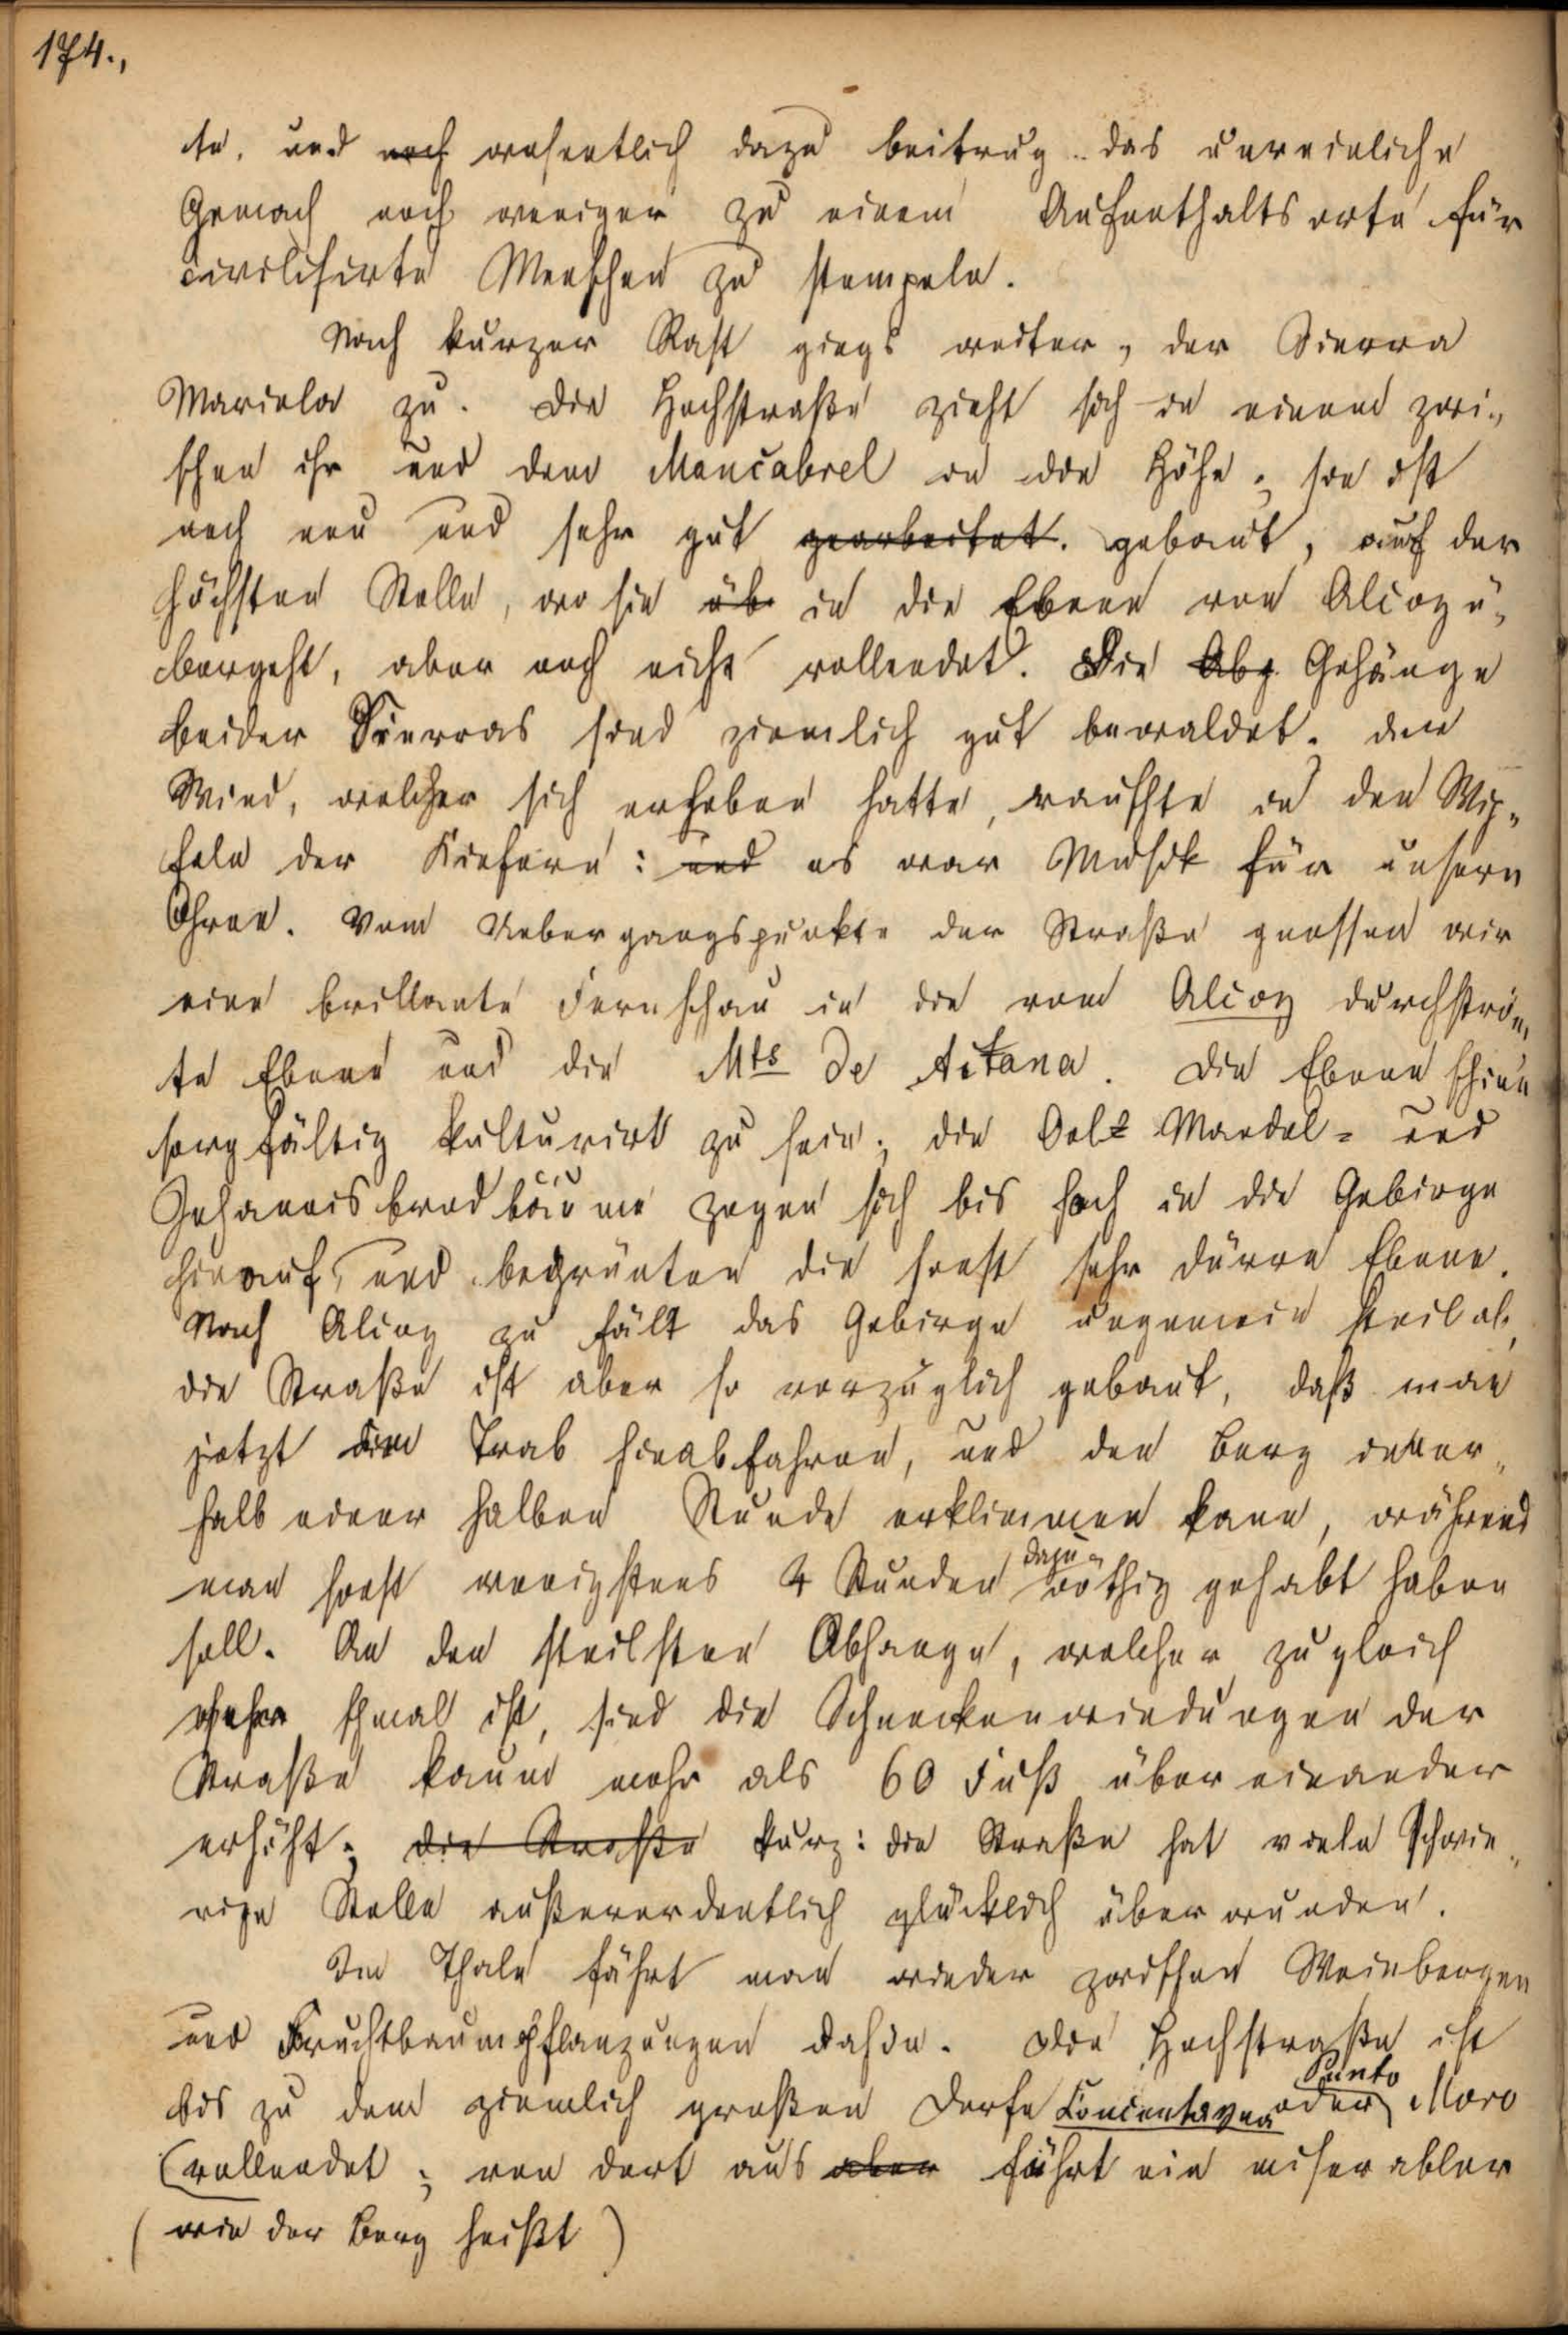 174.,
te, und noch wesentlich dazu beitrug das unreinliche
Gemach noch weniger zu einem Aufenthaltsorte für
civilisirte Menschen zu stempeln.
Nach kurzer Rast gings weiter, der Sierra
Mariola zu. Die Hochstraße zieht sich in einem zwi-
schen ihr und dem Moncabrel in die Höhe; sie ist
noch neu und sehr gut gearbeitet. gebaut, auf der
höchsten Stelle, wo sie üb in die Ebene von Alcoy ü-
bergeht, aber noch nicht vollendet. Die Abg Gehänge
beider Sierras sind ziemlich gut bewaldet. der
Wind, welcher sich erhoben hatte, rauschte in den Wip-
feln der Kiefern: und es war Musik für unsern
Ohren. Vom Uebergangspunkte der Straße genossen wir
eine brillante Fernschau in die vom Alcoy durchström-
te Ebene und die Mts de Aitana. Die Ebene schien
sorgfältig kulturirt zu sein; die Oel- Mandel- und
Johannisbrodbäume zogen sich bis hoch in die Gebirge
hinauf, und begrünten die sonst sehr dürre Ebene.
Nach Alcoy zu fält das Gebirge ungemein steil ab,
die Straße ist aber so vorzüglich gebaut, daß man
jetzt im Trab hinabfahren, und den Berg inner-
halb einer halben Stunde erklimmen kann, während
man sonst wenigstens 4 Stunden dazu nöthig gehabt haben
soll. An den steilsten Abhange, welcher zugleich
sehr schmal ist, sind die Schneckenwindungen der
Straße kaum mehr als 60 Fuß über einander
erhöht; die Straße kurz: die Straße hat viele Schwie-
rige Stelle außerordentlich glücklich überwunden.
Im Thale fährt man wieder zwischen Weinbergen
und Fruchtbaumpflanzungen dahin. Die Hochstraße ist
bis zu dem ziemlich großen Dorfe Concentayna oder Punto Moro
(vollendet; von dort aus aber führt ein miserabler
(wie der Berg heißt)